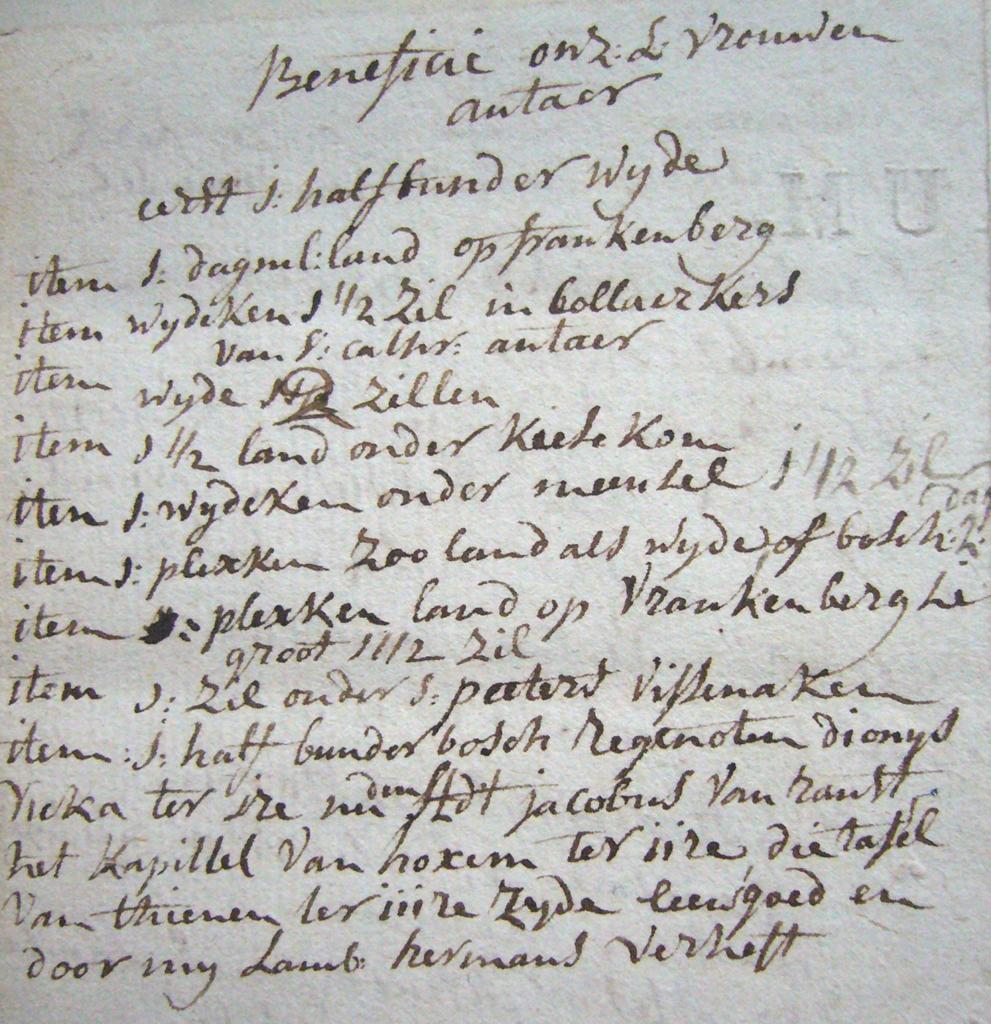 Beneficie onz: L: vrouwen
autaer
eerst 1: half bunder wyde
item 1: dagml: land op frankenberg
item wydeken 1 1/2 zil in bollaerkers
van S: cathr: autaer
item wyde zillen
item 1 1/2 land onder Kiesekom
item 1: wydeken onder meensel 1 1/2 zil
item 1: plexken zoo land als wyde of bosch 1/2 dag
item 1: plexken land op Vrankenberghe
groot 1 1/2 zil
item 1: zil onder S: peeters Vissenaken
item: 1: half bunder bosch regenoten dionys
Vicka ter ire nu den jacobus Van ranst
het Kapittel Van hoxem ter iire, die tafel
Van thienen ter iiire zyde leensgoed en
door my Lamb: hermans verheft
UH